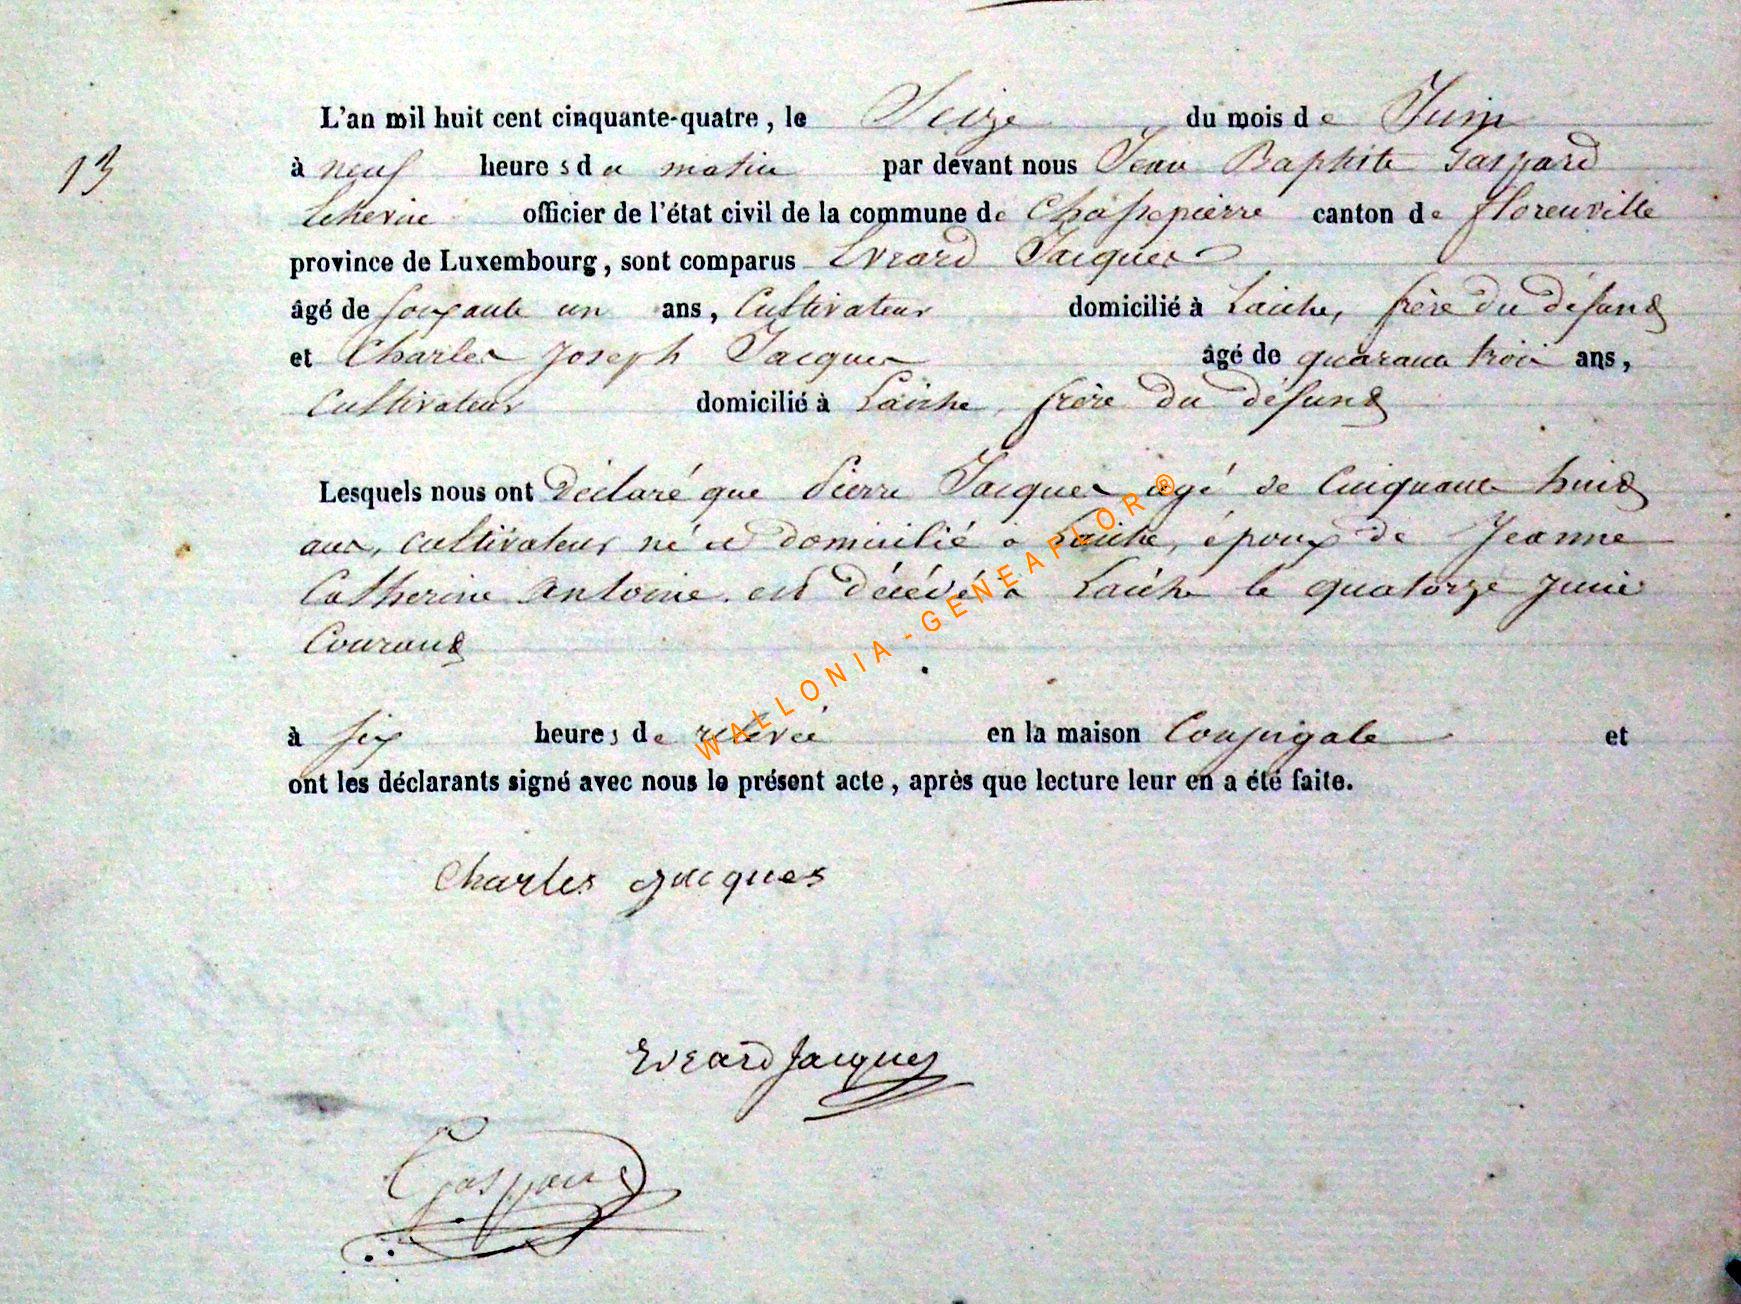 L'an mil huit cent cinquante-quatre, le Seize du mois de Juin
13
à neuf heures du matin par devant nous Jean Baptiste Gaspard
Echevin officier de l'état civil de la commune de Chassepierre canton de florenville
province de Luxembourg, sont comparus Evrard Jacques
âgé de soixante un ans, Cultivateur domicilié à Laiche, frère du défunt
et Charles Joseph Jacques âgé de quarante trois ans,
Cultivateur domicilié à Laiche, frère du défunt
Lesquels nous ont déclaré que Pierre Jacques agé de Cinquante huit
ans, cultivateur né et domicilié à Laiche, époux de Jeanne
Catherine Antoine est décédé à Laiche le quatorze Juin
Courant
à six heures de relevée en la maison Conjugale et
ont les déclarants signé avec nous le présent acte, après que lecture leur en a été faite.
WALLONIA-GENEAFLOR®
Charles Jacques
Evrard Jacques
Gaspard